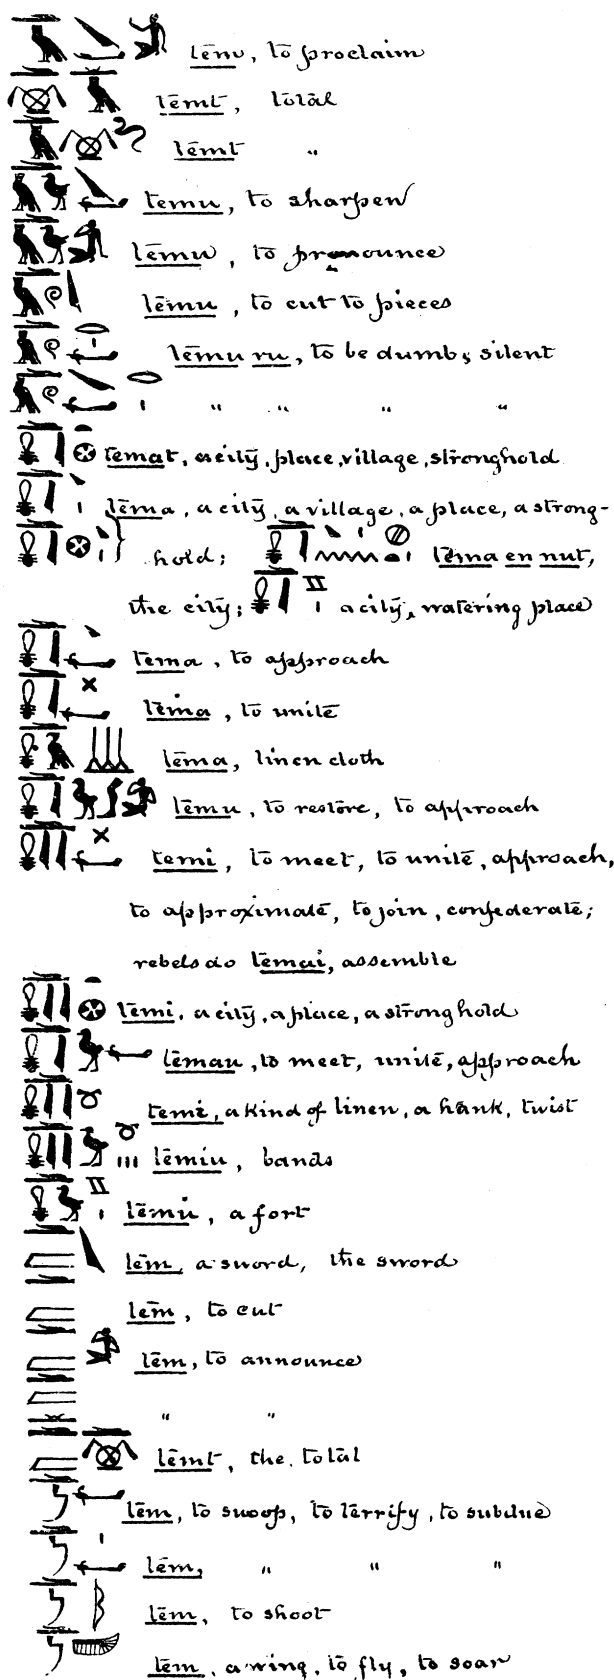 tem, to proclaim
temt, total
temt "
temu, to sharpen
temu, to pronounce
temu, to cut to pieces
temu ru, to be dumb, silent
" " " "
temat, a city, place, village, stronghold
tema, a city, a village, a place, a strong-
hold; tema en nut,
the city; a city, watering place
tema, to approach
tema, to unite
tema, linen cloth
temu, to restore, to approach
temi, to meet, to unite, approach,
to approximate, to join, confederate;
rebels do temai, assemble
temi, a city, a place, a stronghold
temau, to meet, unite, approach
temi, a kind of linen, a hank, twist
temiu, bands
temii, a fort
tem, a sword, the sword
tem, to cut
tem, to announce
" "
temt, the total
tem, to swoop, to terrify, to subdue
tem, " " "
tem, to shoot
tem, a wing, to fly, to soar